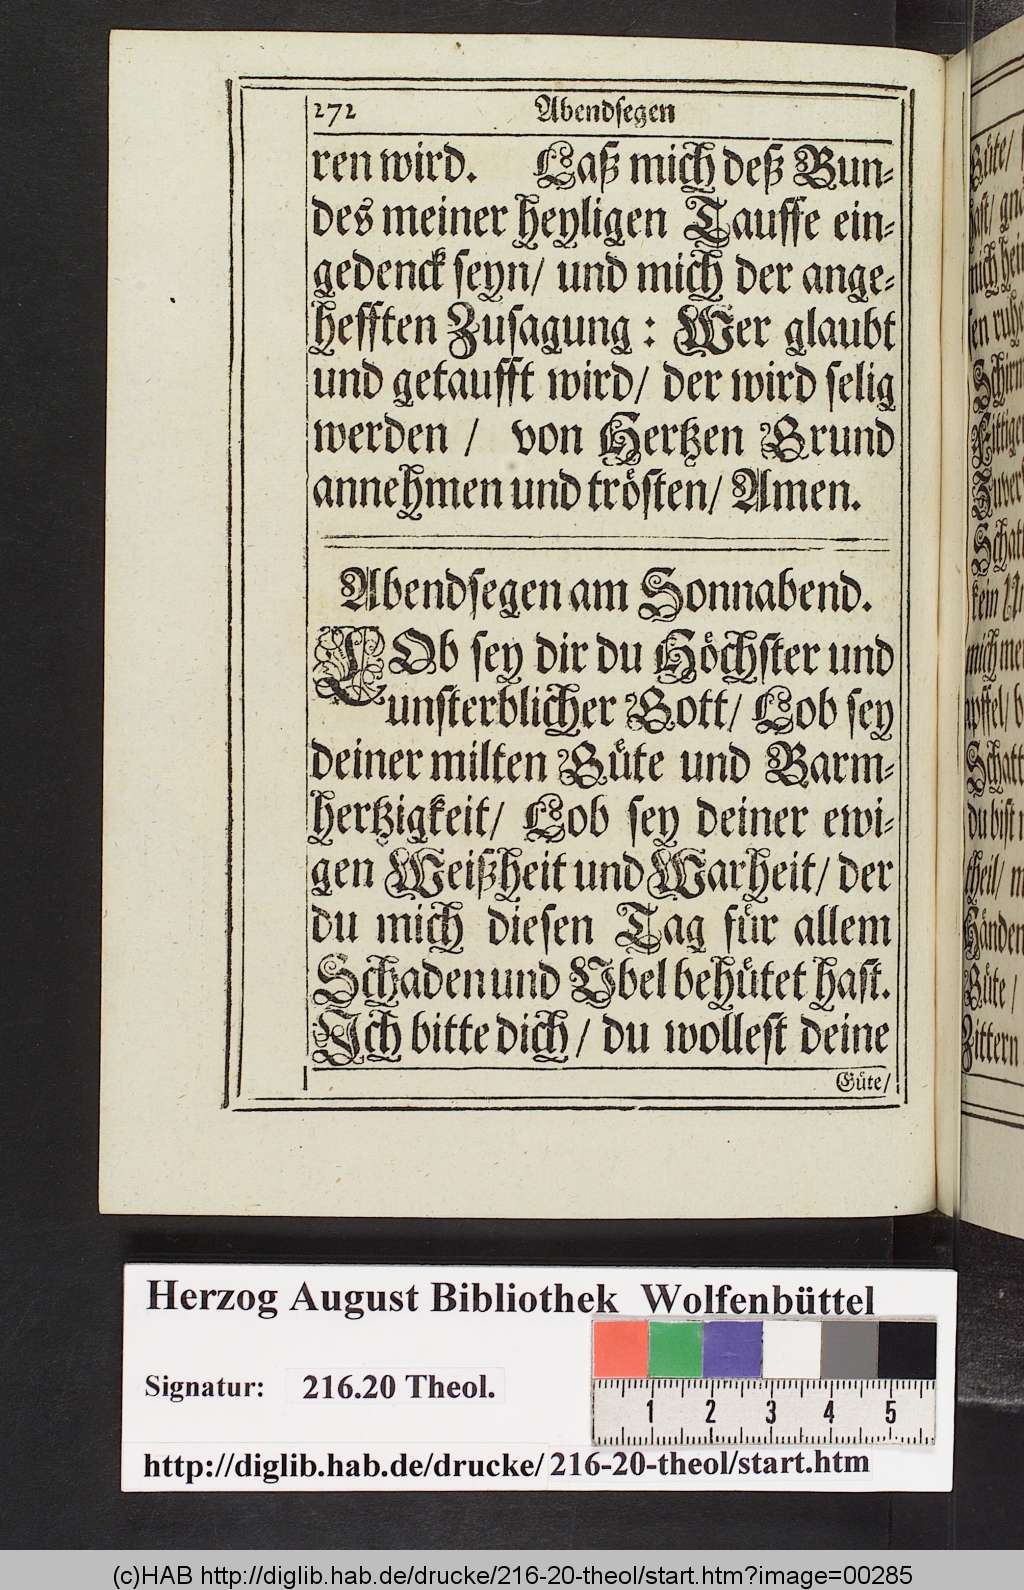 272 Abendsegen
ren wird. Laß mich deß Bun-
des meiner heyligen Tauffe ein-
gedenck seyn/ und mich der ange-
hefften Zusagung: Wer glaubt
und getaufft wird/ der wird selig
werden / von Hertzen Grund
annehmen und trösten/ Amen.
Abendsegen am Sonnabend.
LOb sey dir du Höchster und
unsterblicher Gott/ Lob sey
deiner milten Güte und Barm-
hertzigkeit/ Lob sey deiner ewi-
gen Weißheit und Warheit/ der
du mich diesen Tag für allem
Schaden und Vbel behütet hast.
Ich bitte dich/ du wollest deine
Güte/
Güte/
hast/
mich
Schirm
kein
mich
Schatt
du bist
theil/
Händen
Güte /
Zittern
Herzog August Bibliothek Wolfenbüttel
Signatur: 216.20 Theol.
1 2 3 4 5
http://diglib.hab.de/drucke/216-20-theol/start.htm
(c)HAB http://diglib.hab.de/drucke/216-20-theol/start.htm?image=00285